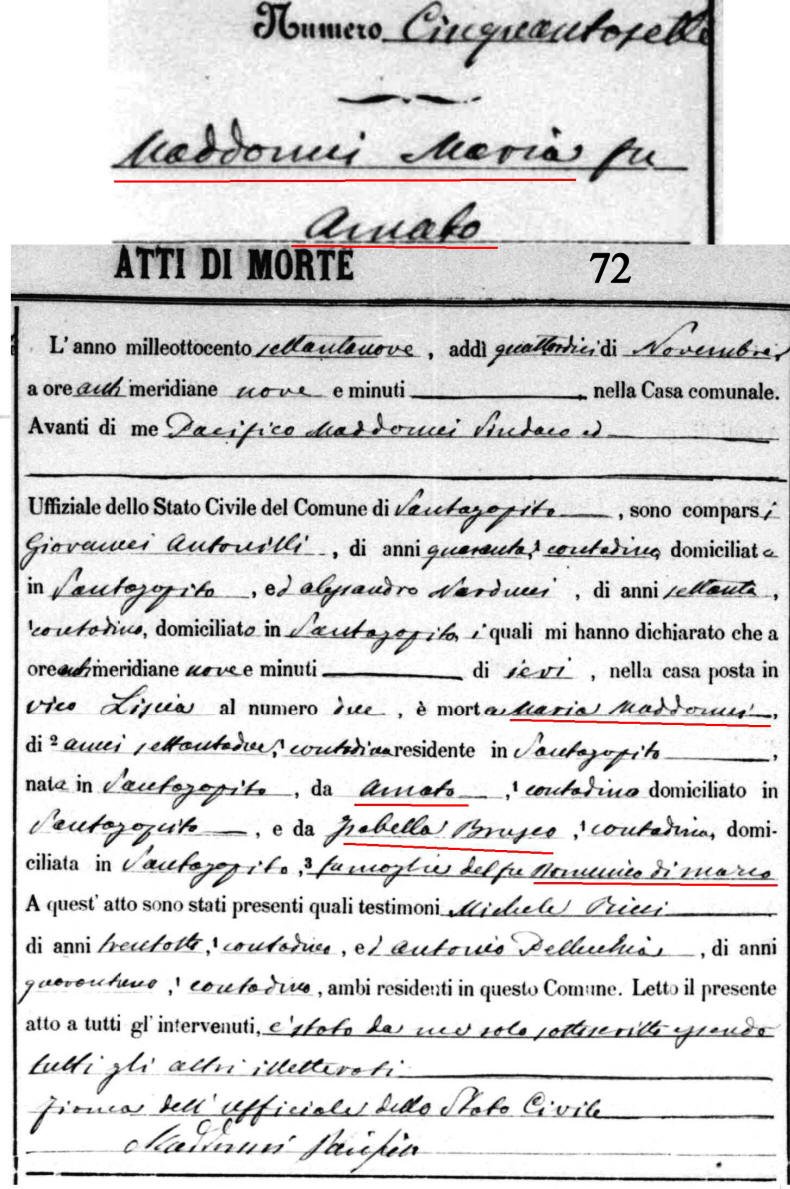 Numero Cinquantasette
Maddonni Maria fu
Amato
ATTI DI MORTE 72
L'anno milleottocento settantanove, addì quattordici di Novembre,
a ore anti meridiane nove e minuti , nella Casa comunale.
Avanti di me Pacifico Maddonni Sindaco ed
Uffiziale dello Stato Civile del Comune di Santagapito, sono comparsi
Giovanni Antonilli, di anni quaranta, contadino, domiciliato
in Santagapito, ed Alessandro Narducci, di anni settanta,
contadino, domiciliato in Santagapito, i quali mi hanno dichiarato che a
ore antimeridiane nove e minuti di ieri, nella casa posta in
vico Liscia al numero due, è morta Maria Maddonni,
di anni settantadue, contadina residente in Santagapito,
nata in Santagapito, da Amato, contadino domiciliato in
Santagapito, e da Isabella Brusco, contadina, domi-
ciliata in Santagapito, fu moglie del fu Domenico di Marco
A quest' atto sono stati presenti quali testimoni Michele Ricci
di anni trentotto, contadino, ed Antonio Pellecchia, di anni
quarantuno, contadino, ambi residenti in questo Comune. Letto il presente
atto a tutti gl' intervenuti, è stato da me solo sottoscritto essendo
tutti gli altri illetterati
Firma dell' ufficiale dello Stato Civile
Maddonni Pacifico